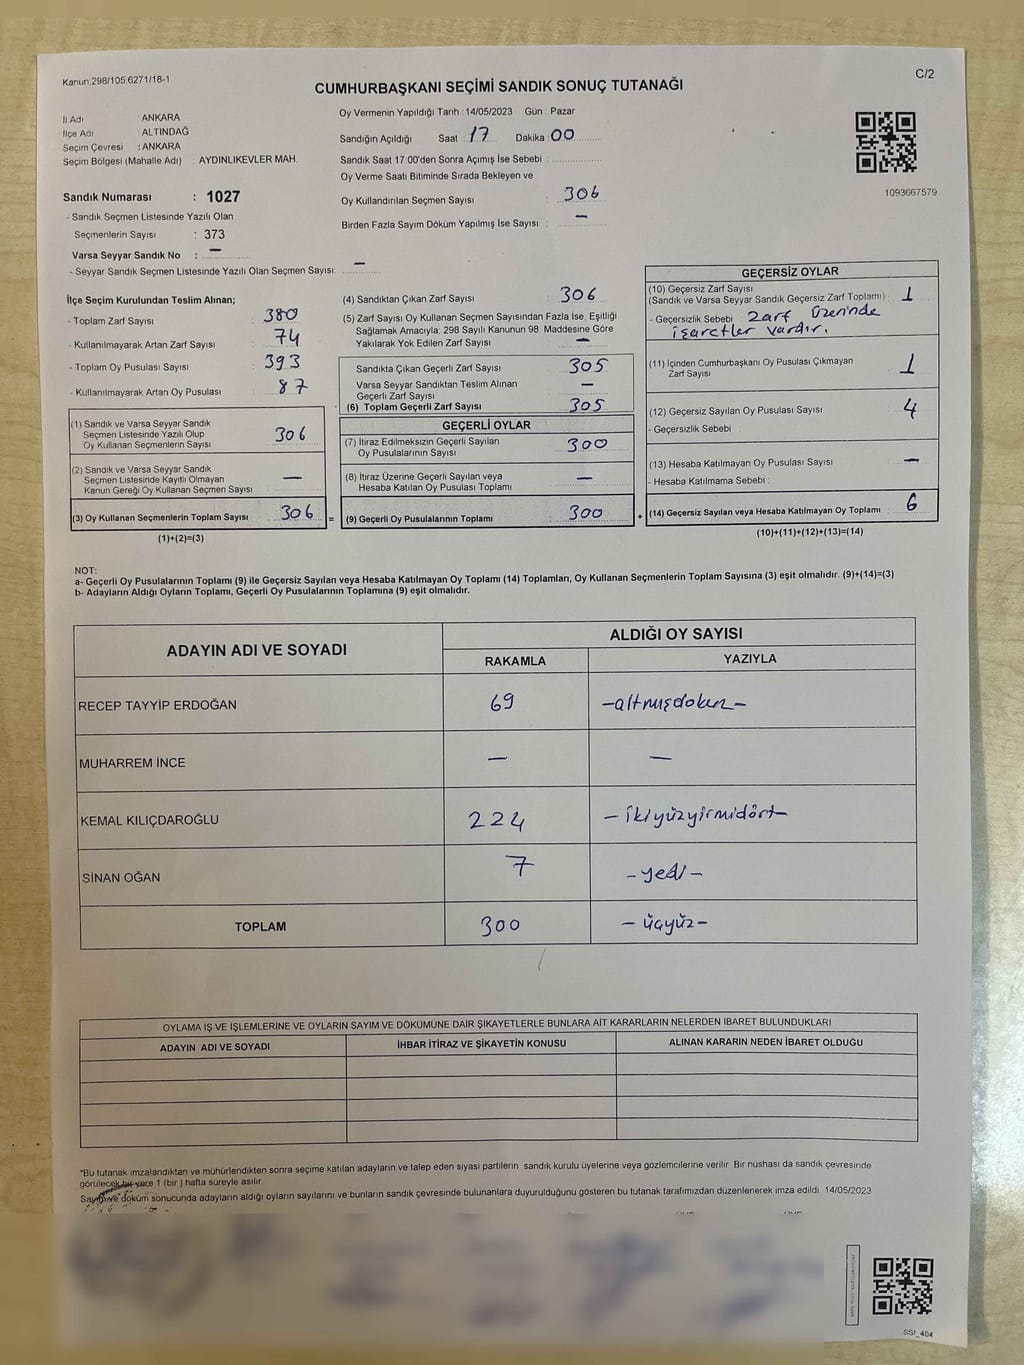 Kanun:298/105,6271/18-1
C/2
CUMHURBAŞKANI SEÇİMİ SANDIK SONUÇ TUTANAĞI
İl Adı ANKARA
İlçe Adı : ALTINDAĞ
Seçim Çevresi : ANKARA
Seçim Bölgesi (Mahalle Adı) : AYDINLIKEVLER MAH.
Oy Vermenin Yapıldığı Tarih : 14/05/2023 Gün : Pazar
Sandığın Açıldığı Saat : 17 Dakika 00
Sandık Saat 17 00'den Sonra Açımış İse Sebebi :
Oy Verme Saati Bitiminde Sırada Bekleyen ve
Oy Kullandırılan Seçmen Sayısı : 306
Birden Fazla Sayım Döküm Yapılmış İse Sayısı : –
1093667579
Sandık Numarası : 1027
- Sandık Seçmen Listesinde Yazılı Olan
Seçmenlerin Sayısı : 373
Varsa Seyyar Sandık No : –
- Seyyar Sandık Seçmen Listesinde Yazılı Olan Seçmen Sayısı: –
İlçe Seçim Kurulundan Teslim Alınan;
- Toplam Zarf Sayısı : 380
- Kullanılmayarak Artan Zarf Sayısı : 74
- Toplam Oy Pusulası Sayısı : 393
- Kullanılmayarak Artan Oy Pusulası : 87
(1) Sandık ve Varsa Seyyar Sandık
Seçmen Listesinde Yazılı Olup
Oy Kullanan Seçmenlerin Sayısı 306
(2) Sandık ve Varsa Seyyar Sandık
Seçmen Listesinde Kayıtlı Olmayan
Kanun Gereği Oy Kullanan Seçmen Sayısı –
(3) Oy Kullanan Seçmenlerin Toplam Sayısı 306
(1)+(2)=(3)
(4) Sandıktan Çıkan Zarf Sayısı : 306
(5) Zarf Sayısı Oy Kullanan Seçmen Sayısından Fazla İse, Eşitliği
Sağlamak Amacıyla; 298 Sayılı Kanunun 98. Maddesine Göre
Yakılarak Yok Edilen Zarf Sayısı : –
Sandıkta Çıkan Geçerli Zarf Sayısı : 305
Varsa Seyyar Sandıktan Teslim Alınan
Geçerli Zarf Sayısı : –
(6) Toplam Geçerli Zarf Sayısı : 305
GEÇERLİ OYLAR
(7) İtiraz Edilmeksizin Geçerli Sayılan
Oy Pusulalarının Sayısı : 300
(8) İtiraz Üzerine Geçerli Sayılan veya
Hesaba Katılan Oy Pusulası Toplamı : –
= (9) Geçerli Oy Pusulalarının Toplamı : 300
GEÇERSİZ OYLAR
(10) Geçersiz Zarf Sayısı
(Sandık ve Varsa Seyyar Sandık Geçersiz Zarf Toplamı) : 1
- Geçersizlik Sebebi : zarf üzerinde
işaretler vardır.
(11) İçinden Cumhurbaşkanı Oy Pusulası Çıkmayan
Zarf Sayısı : 1
(12) Geçersiz Sayılan Oy Pusulası Sayısı : 4
- Geçersizlik Sebebi :
(13) Hesaba Katılmayan Oy Pusulası Sayısı : –
- Hesaba Katılmama Sebebi :
+ (14) Geçersiz Sayılan veya Hesaba Katılmayan Oy Toplamı : 6
(10)+(11)+(12)+(13)=(14)
NOT:
a- Geçerli Oy Pusulalarının Toplamı (9) ile Geçersiz Sayılan veya Hesaba Katılmayan Oy Toplamı (14) Toplamları, Oy Kullanan Seçmenlerin Toplam Sayısına (3) eşit olmalıdır. (9)+(14)=(3)
b- Adayların Aldığı Oyların Toplamı, Geçerli Oy Pusulalarının Toplamına (9) eşit olmalıdır.
ADAYIN ADI VE SOYADI ALDIĞI OY SAYISI
RAKAMLA YAZIYLA
RECEP TAYYİP ERDOĞAN 69 –altmışdokuz–
MUHARREM İNCE – –
KEMAL KILIÇDAROĞLU 224 – ikiyüzyirmidört–
SİNAN OĞAN 7 –yedi–
TOPLAM 300 –üçyüz–
OYLAMA İŞ VE İŞLEMLERİNE VE OYLARIN SAYIM VE DÖKÜMÜNE DAİR ŞİKAYETLERLE BUNLARA AİT KARARLARIN NELERDEN İBARET BULUNDUKLARI
ADAYIN ADI VE SOYADI İHBAR İTİRAZ VE ŞİKAYETİN KONUSU ALINAN KARARIN NEDEN İBARET OLDUĞU
*Bu tutanak imzalandıktan ve mühürlendikten sonra seçime katılan adayların ve talep eden siyasi partilerin sandık kurulu üyelerine veya gözlemcilerine verilir. Bir nüshası da sandık çevresinde
görülecek bir yere 1 (bir ) hafta süreyle asılır.
Sayım ve döküm sonucunda adayların aldığı oyların sayılarını ve bunların sandık çevresinde bulunanlara duyurulduğunu gösteren bu tutanak tarafımızdan düzenlenerek imza edildi 14/05/2023
SSI_404